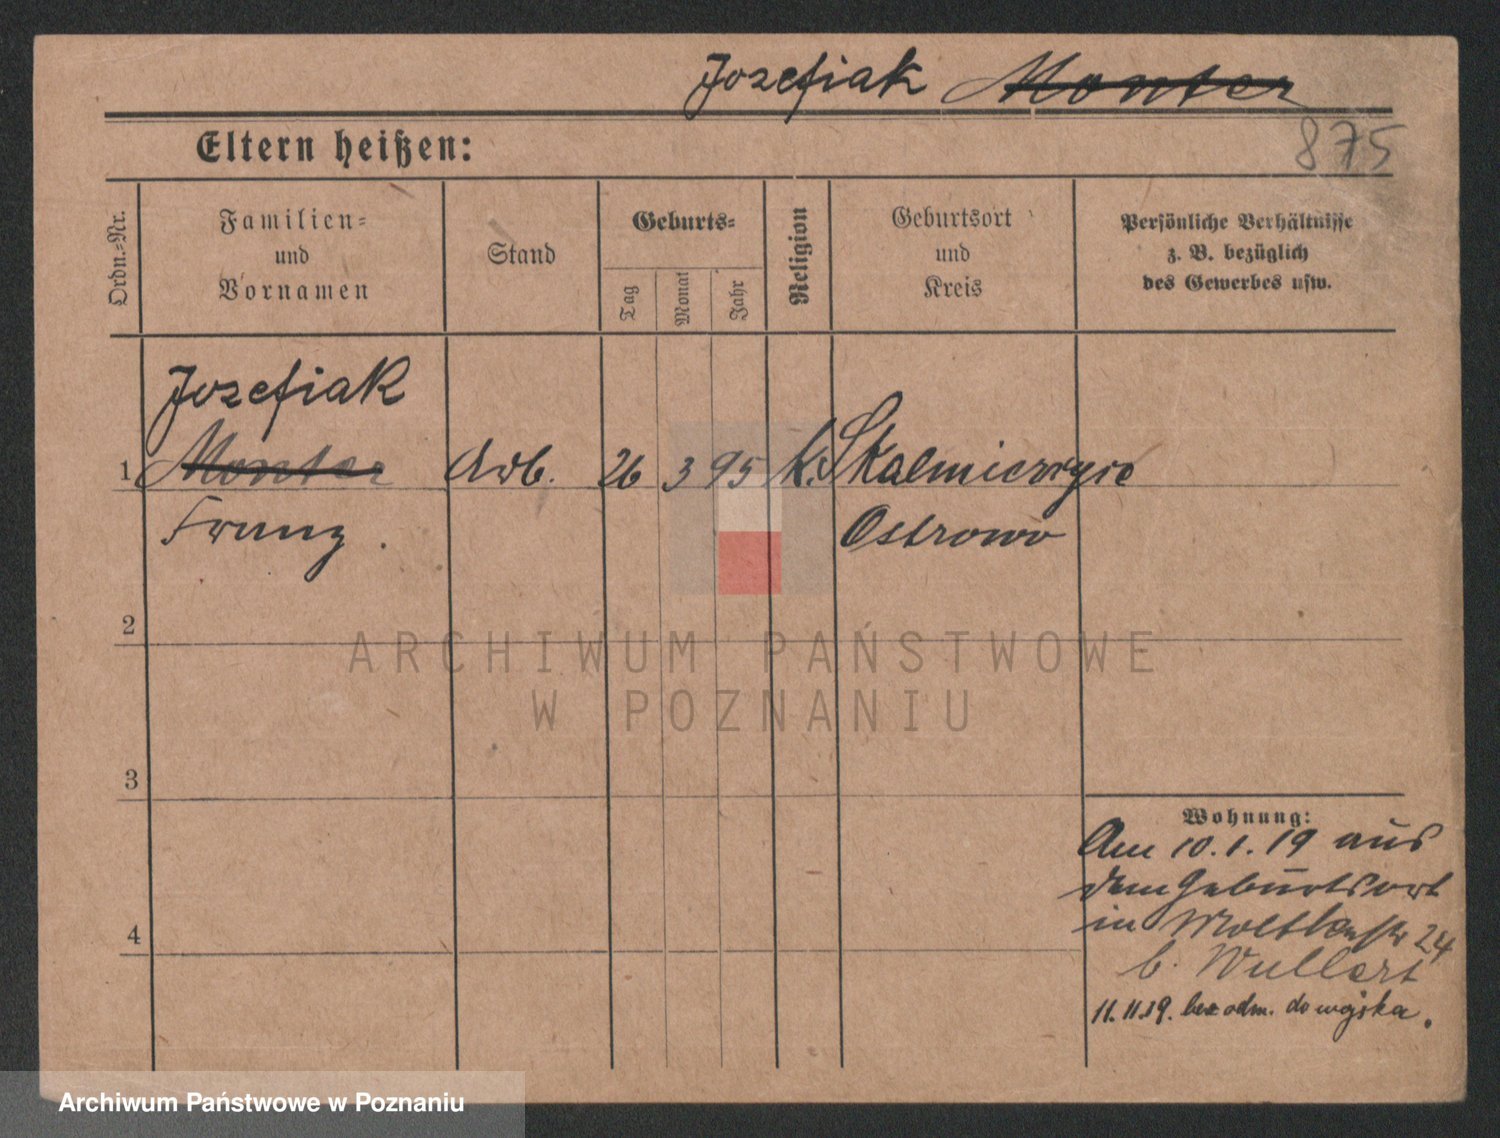 Jozefiak Monter
875
Eltern heißen:
Ordn.-Nr.
Familien-
und
Vornamen
Stand
Geburts-
Tag
Monat
Jahr
Religion
Geburtsort
und
Kreis
Persönliche Verhältnisse
z. B. bezüglich
des Gewerbes usw.
Jozefiak
1 Monter Arb. 26 3 95 k. Skalmierzyce
Franz. Ostrowo
2
3
4
Wohnung:
Am 10.1.19 aus
dem Geburtsort
in Moltkestr 24
b. Wullert
11.11.19. bez odm. do wojska.
ARCHIWUM PAŃSTWOWE
W POZNANIU
Archiwum Państwowe w Poznaniu